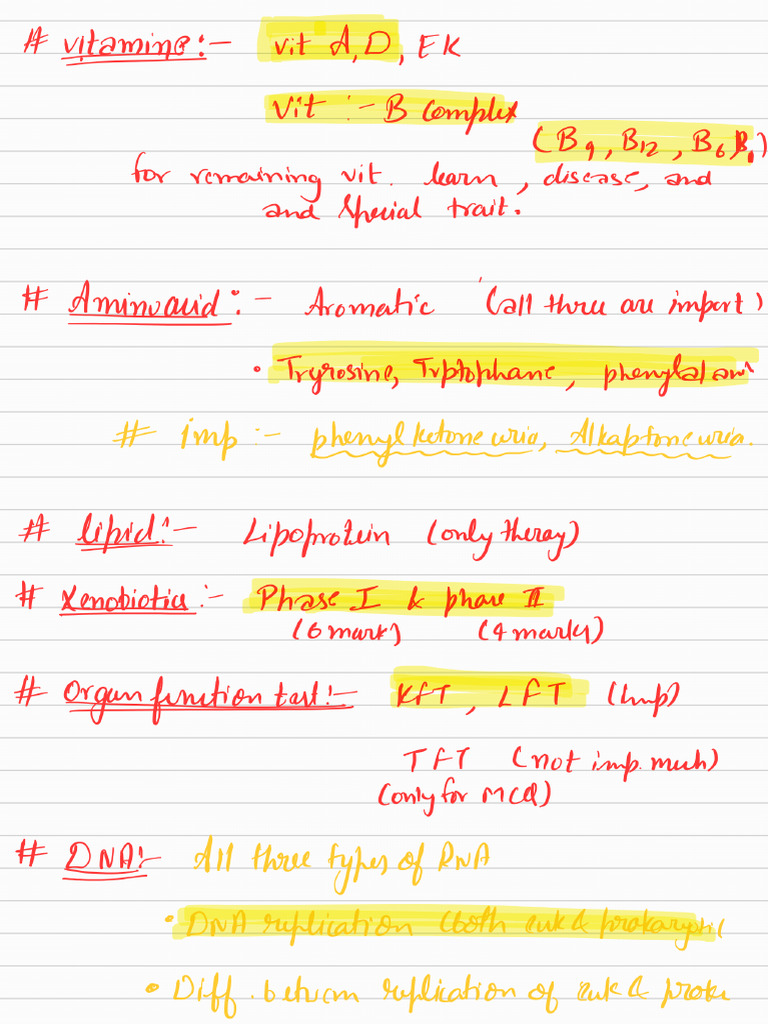 # vitamine:- vit A, D, EK
Vit :- B Complex
(B9, B12, B6, B1)
for remaining vit. learn, disease, and
and special trait.
# Aminoacid:- Aromatic (all three are import)
• Tryrosine, Trptophane, phenylalani
# imp :- phenylketoneuria, Alkaptoneuria.
# lipid:- Lipoprotein (only theray)
# Xenobiotics:- Phase I & phase II
(6 mark) (4 marks)
# Organ function test:- KFT, LFT (Imp)
TFT (not imp. much)
(only for MCQ)
# DNA:- All three types of RNA
• DNA replication (both euk & prokaryotic
• Diff. between replication of euk & proka